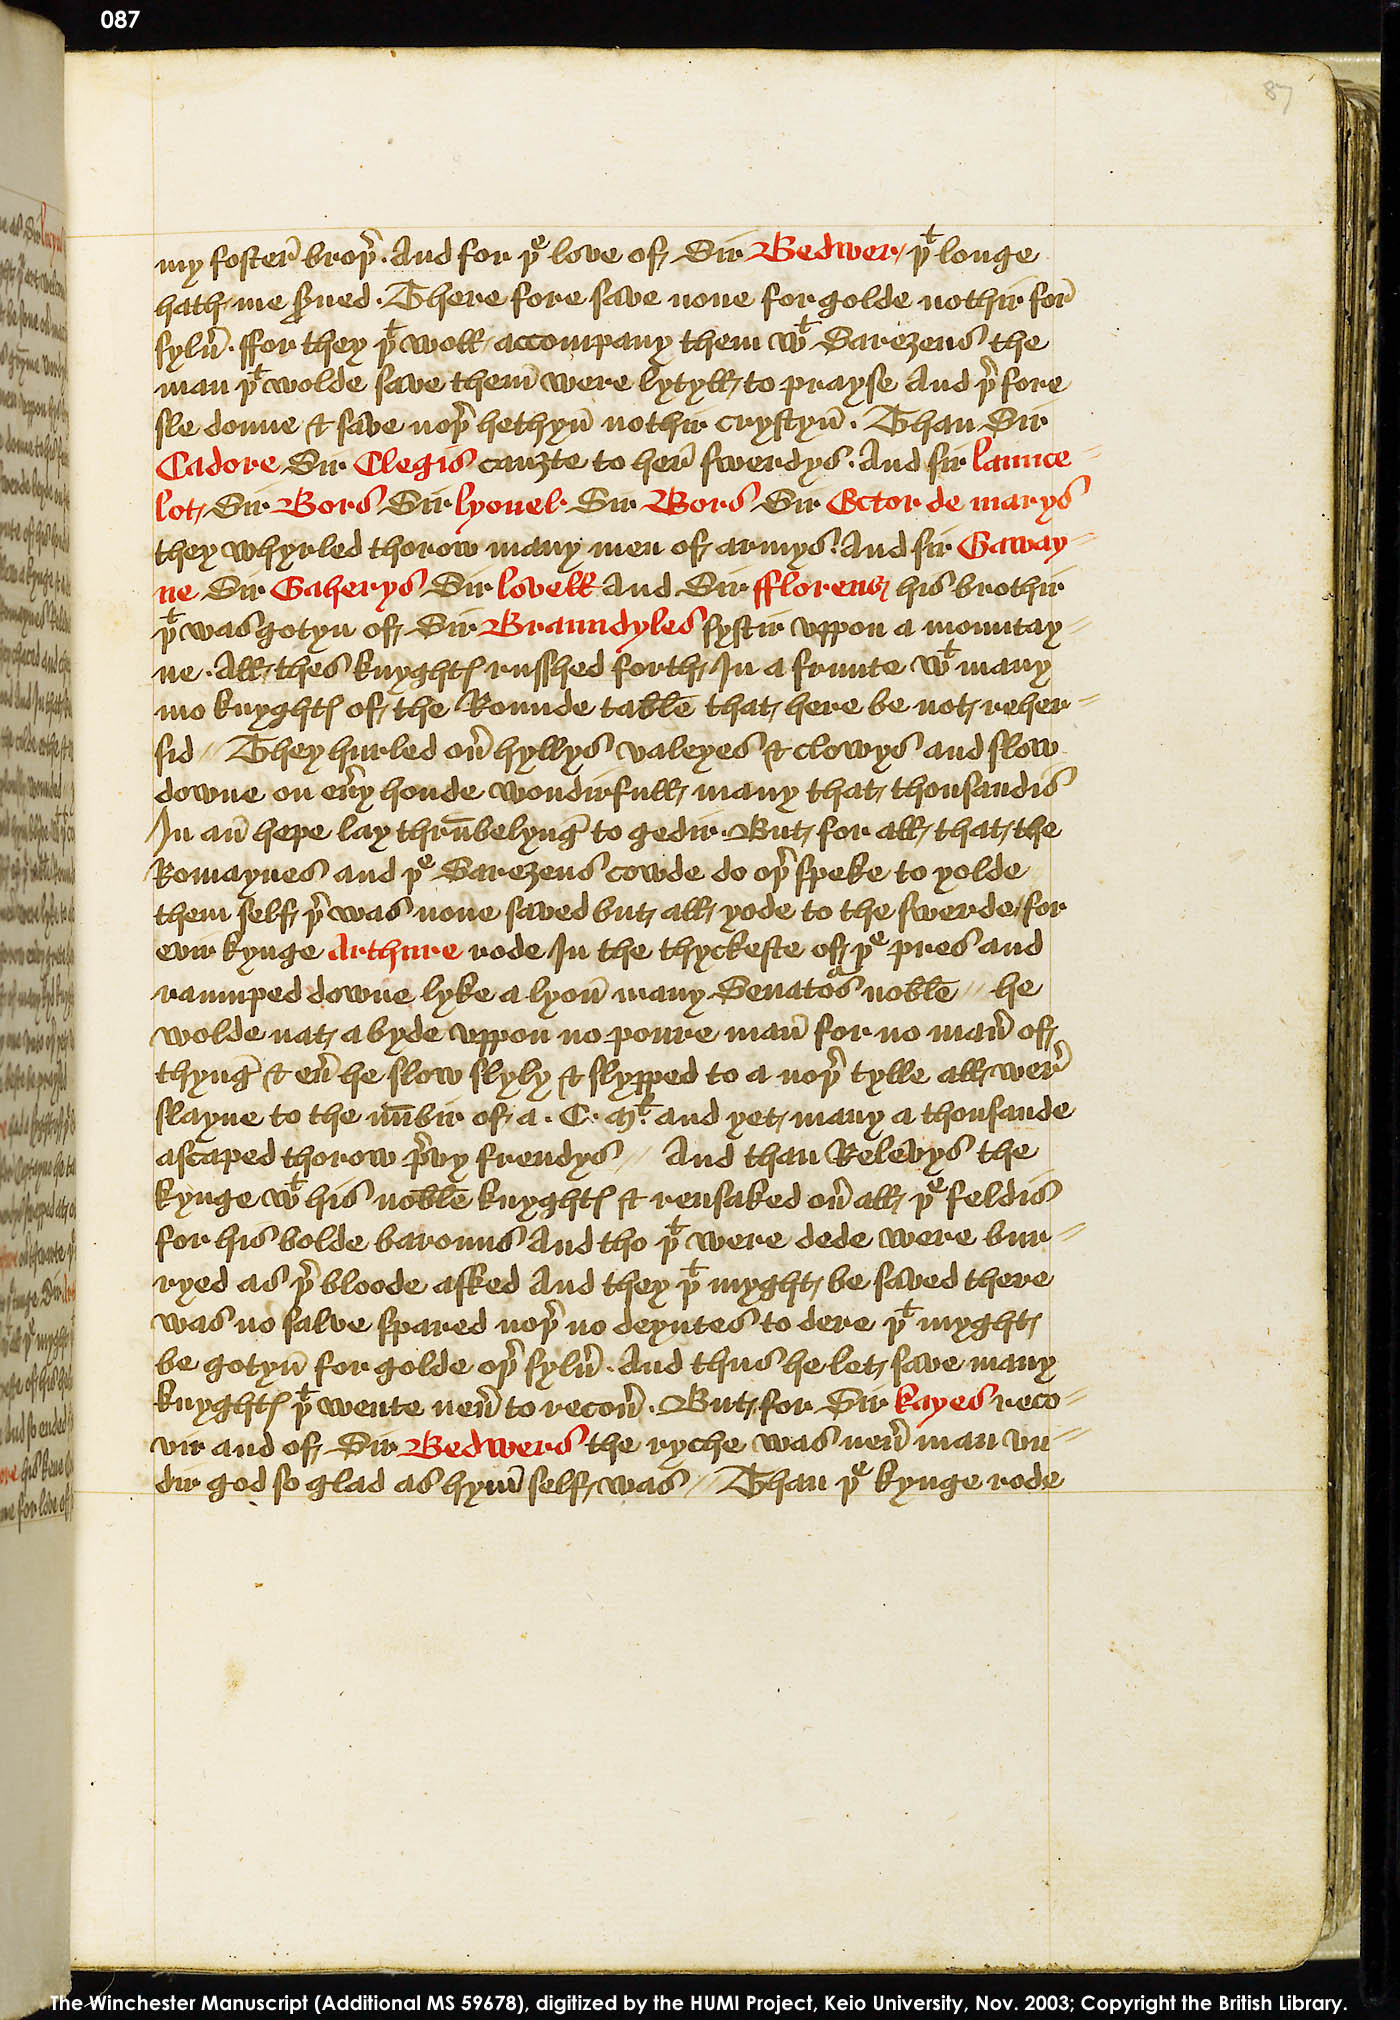 087
87
my fosterꝛ̄ broþ̉. And for þᵉ love of Sir Bedwer / þᵗ longe
hath me s̉ued. There fore save none for golde nothir forꝛ̄
sylủ. ffor they þᵗ woll accompany them wᵗ Sarezens the
man þᵗ wolde save them̄ were lytyll to prayse And þ̉fore
sle doune & save noþ̉ hethyn̄ nothir crystyn̄. Than Sir
Cadore Sir Clegis cauȝte to her̄ swerdys. And sir launce=
lot, Sir Bors Sir lyonel Sir Bors Sir Ector de marys
they whyrled thorow many men of armys. And sir Gaway=
ne Sir Gaherys Sir lovell And Sir fflorens, his brothir
þᵗ was gotyn of Sir Braundyles systir vppon a mountay=
ne. All thes knyghtꝭ russhed forth In a frunte wᵗ many
mo knyghtꝭ of the Rounde tabłe that here be not reher=
sid // They hurled oủ hyllys valeyes & clowys and slow
downe on eủy honde wondirfull many that thousandis
In an̄ hepe lay thru̅belyng̉ to gedir. But for all that the
Romaynes and þᵉ Sarezens cowde do oþ̉ speke to yolde
them self þ̉ was none saved but all yode to the swerde / for
evir kynge Arthure rode In the thyckeste of þᵉ pres and
raumped downe lyke a lyon̄ many Senatoᵘs nobłe // he
wolde nat abyde vppon no poure man̄ for no man̉ of
thyng̉ & eủ he slow slyly & slypped to a noþ̉ tylle all wer̄
slayne to the nu̅bir of a. C. Mᵗ. and yet many a thousande
ascaped thorow p̉vy frendys // And than Relevys the
kynge wᵗ his nobłe knyghtꝭ & rensaked oủ all þᵉ feldis
for his bolde barouns And tho þᵗ were dede were bur=
ryed as þ̉ bloode asked And they þᵗ myght be saved there
was no salve spared noþ̉ no deyntes to dere þᵗ myght
be gotyn̄ for golde oþ̉ sylủ. And thus he let save many
knyghtꝭ þᵗ wente neủ to recoủ. But for Sir kayes reco=
vir and of Sir Bedwers the ryche was neủ man vn=
dir god so glad as hym̄ self was // Than þᵉ kynge rode
The Winchester Manuscript (Additional MS 59678), digitized by the HUMI Project, Keio University, Nov. 2003; Copyright the British Library.